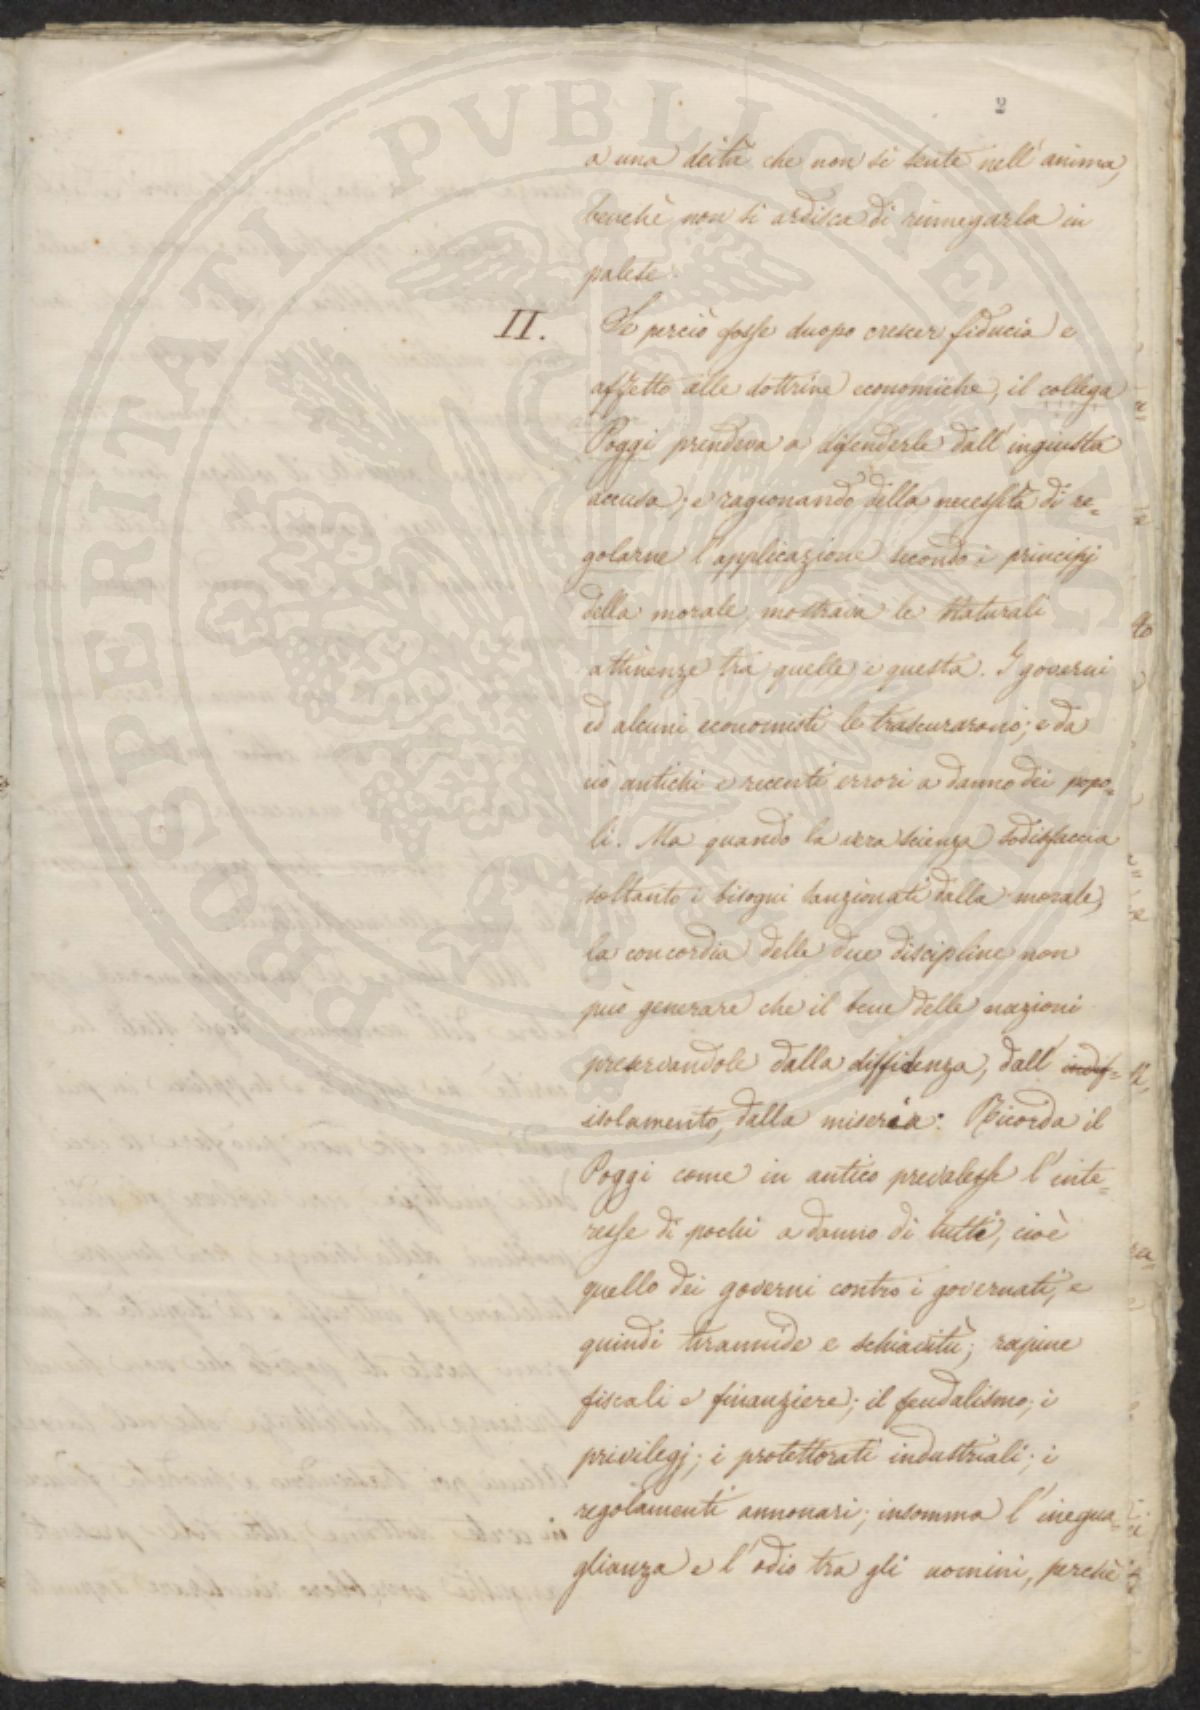 2
a una deità che non si sente nell'anima,
benchè non si ardisca di rinnegarla in
palese.
II. Se perciò fosse duopo crescer fiducia e
affetto alle dottrine economiche, il collega
Poggi prendeva a difenderle dall'ingiusta
accusa; e ragionando della necessità di re=
golarne l'applicazione secondo i principj
della morale, mostrava le naturali
attinenze tra quelle e questa. I governi
ed alcuni economisti le trascurarono; e da
ciò antichi e recenti errori a danno dei popo=
li. Ma quando la vera scienza sodisfaccia
soltanto i bisogni sanzionati dalla morale,
la concordia delle due discipline non
può generare che il bene delle nazioni
preservandole dalla diffidenza, dall' indif=
isolamento, dalla miseria. Ricorda il
Poggi come in antico prevalesse l'inte=
resse di pochi a danno di tutti, cioè
quello dei governi contro i governati, e
quindi tirannide e schiavitù; rapine
fiscali e finanziere; il feudalismo; i
privilegj; i protettorati industriali; i
regolamenti annonari; insomma l'inegua=
glianza e l'odio tra gli uomini, perchè
PROSPERITATI PVBLICAE AVGENDAE